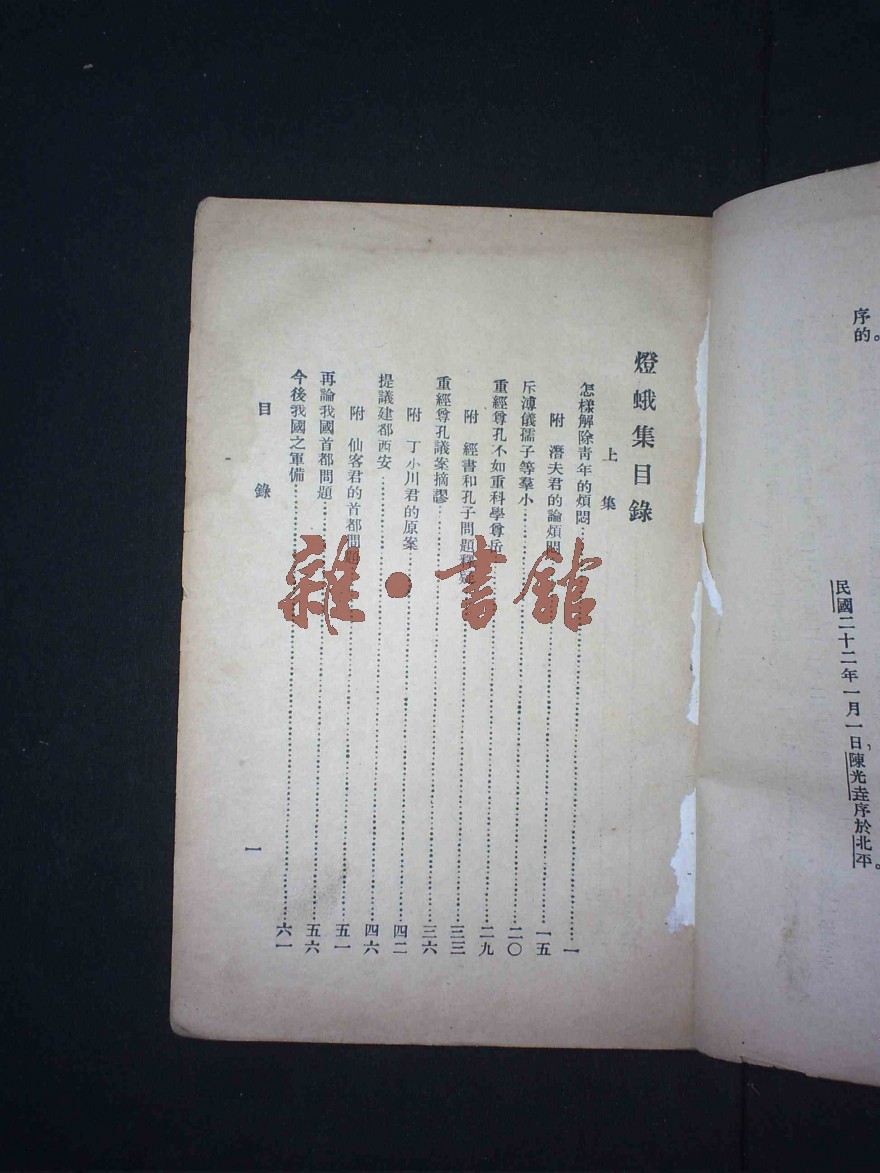 序的。
民國二十二年一月一日，陳光垚序於北平。
燈蛾集目錄
上集
怎樣解除青年的煩悶……一
附 潛夫君的論煩悶……一五
斥溥儀孺子等羣小……二〇
重經尊孔不如重科學尊岳……二九
附 經書和孔子問題……三三
重經尊孔議案摘謬……三六
附 丁小川君的原案……四二
提議建都西安……四六
附 仙客君的首都問題……五一
再論我國首都問題……五六
今後我國之軍備……六一
目錄
一
雜·書館